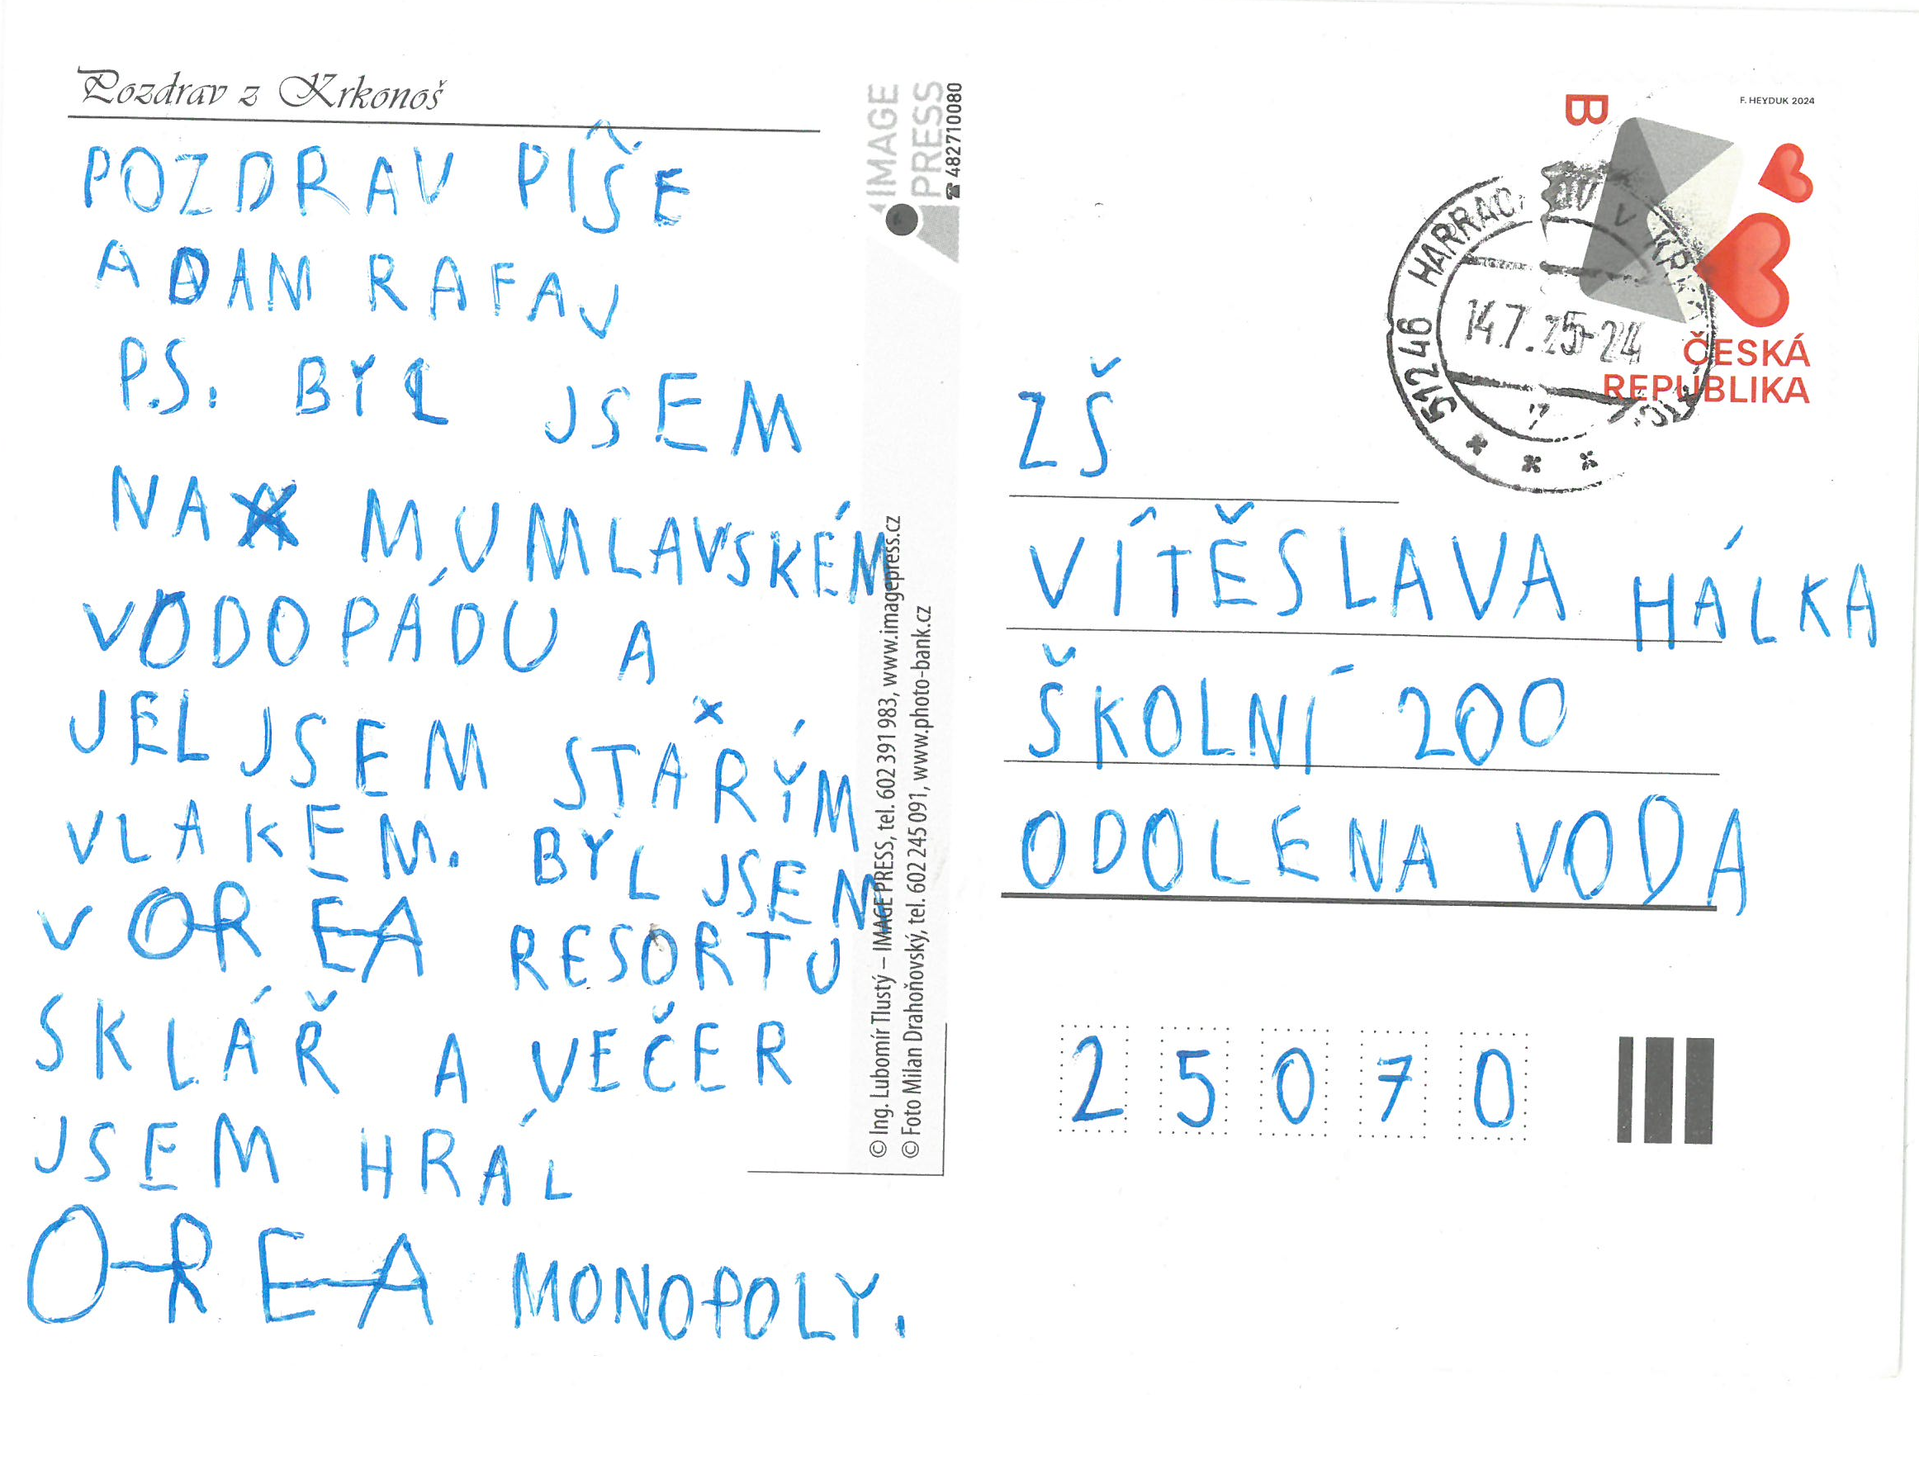 Pozdrav z Krkonoš
POZDRAV PÍŠE
ADAM RAFAJ
P.S. BYL JSEM
NA MUMLAVSKÉM
VODOPÁDU A
JEL JSEM STARÝM
VLAKEM. BYL JSEM
V OREA RESORTU
SKLÁŘ A VEČER
JSEM HRÁL
OREA MONOPOLY.
IMAGE
PRESS
☎ 482710080
© Ing. Lubomír Tlustý – IMAGE PRESS, tel. 602 391 983, www.imagepress.cz
© Foto Milan Drahoňovský, tel. 602 245 091, www.photo-bank.cz
B
F. HEYDUK 2024
ČESKÁ
REPUBLIKA
51246 HARRACHOV V KRK
14.7.25-24
ZŠ
VÍTĚSLAVA HÁLKA
ŠKOLNÍ 200
ODOLENA VODA
25070